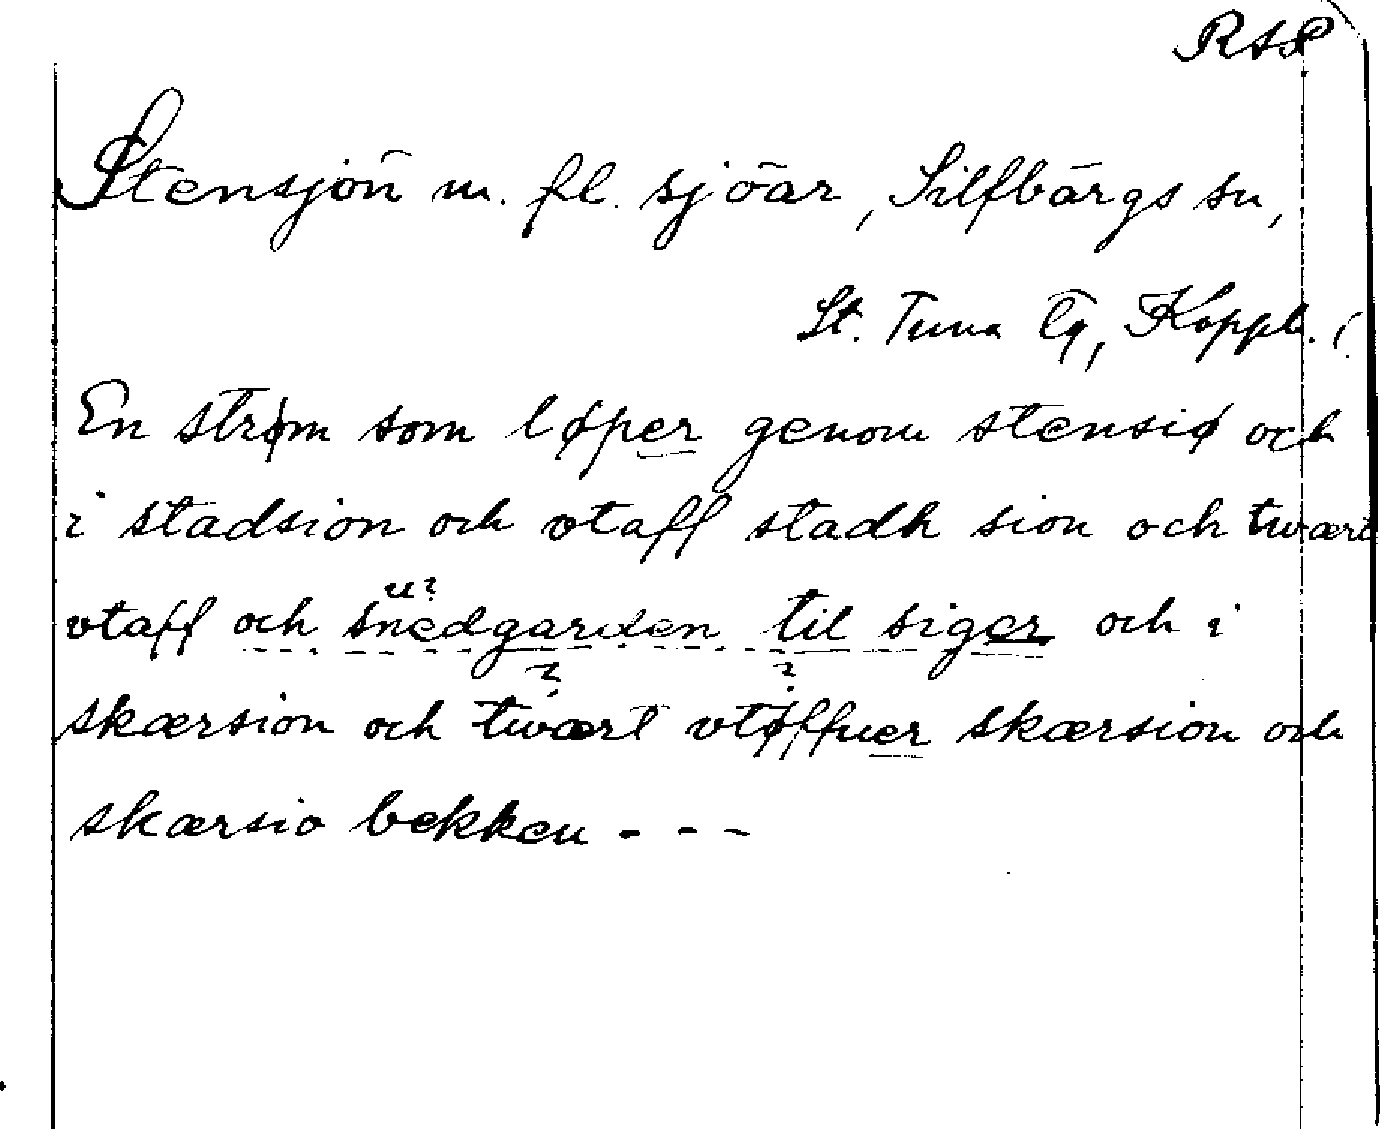 RAP
Stensjön m. fl. sjöar, Silfbärgs sn,
St. Tuna tg, Koppb. l.
En strøm som løper genom stensiø och
i stadsion och vtaff stadh sion och twært
vtaff och snedgarden til siger och i
u?
skærsion och twært vtøffuer skærsion och
? ?
skærsio bekken - - -